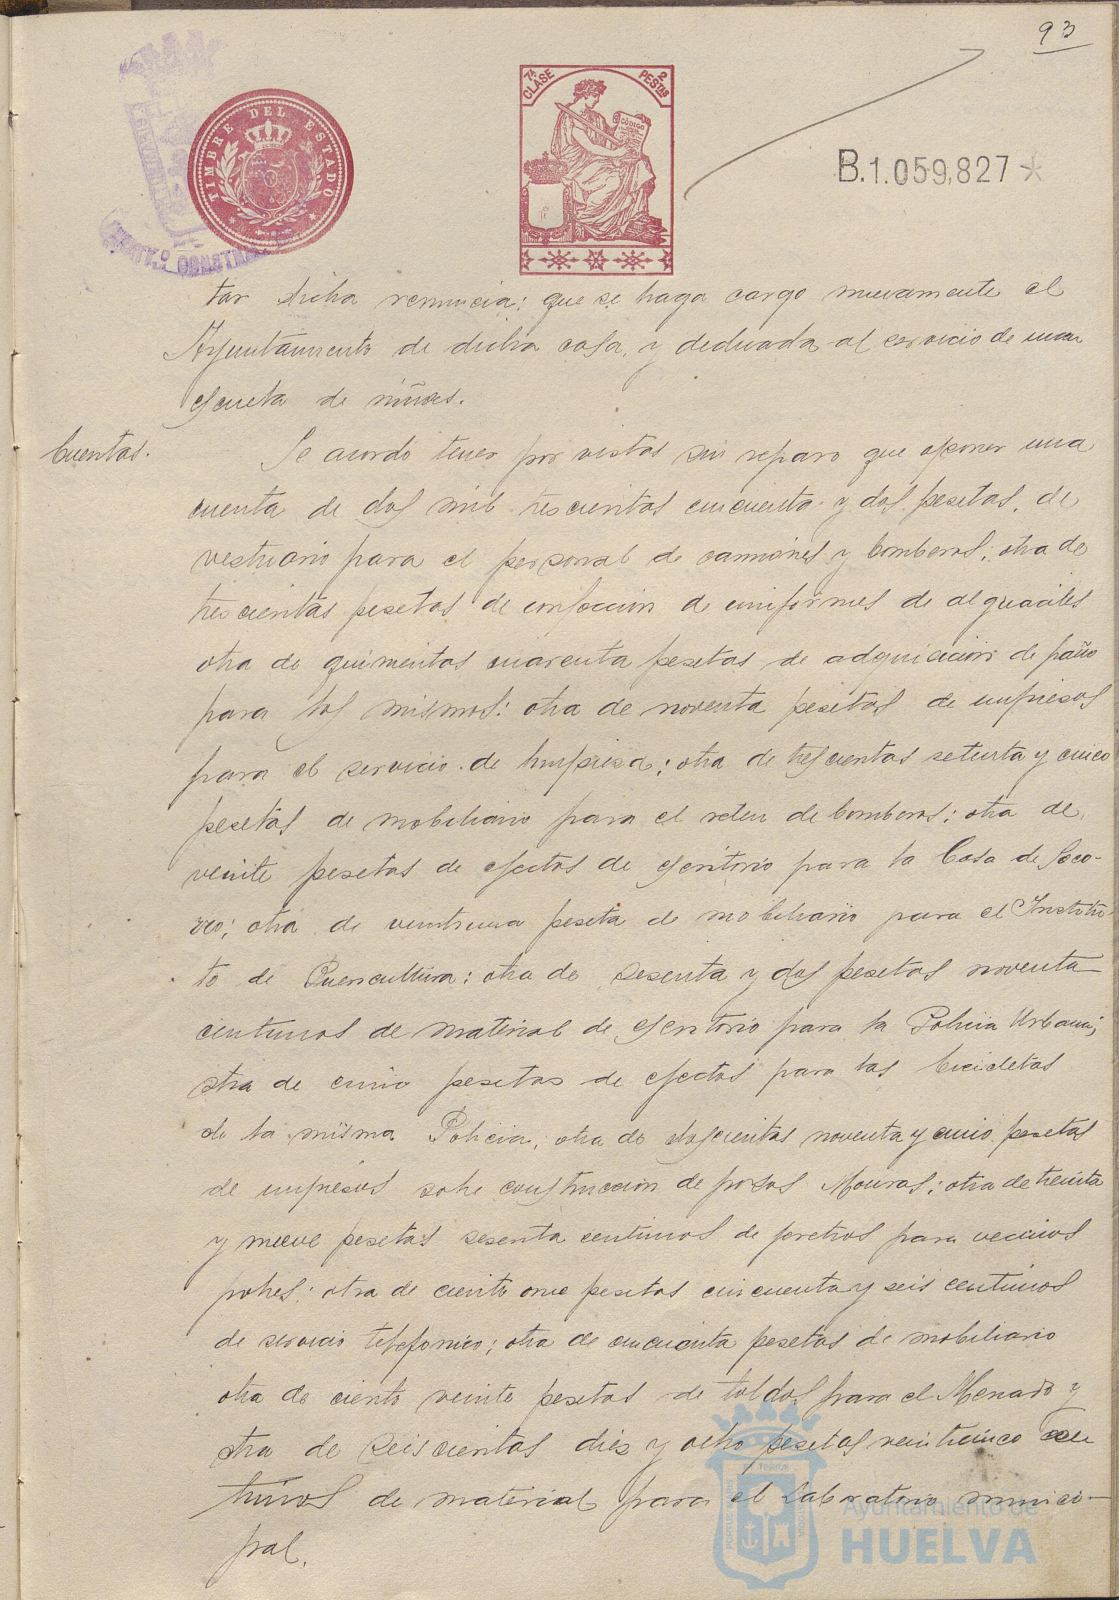 93
TIMBRE DEL ESTADO
7ª CLASE
2 PESTAS
CÓDIGO
B.1.059,827 *
CONST
tar dicha renuncia; que se haga cargo nuevamente el
Ayuntamiento de dicha casa, y dedicada al servicio de una
escuela de niñas.
Cuentas.
Se acordó tener por vistas sin reparo que oponer una
cuenta de dos mil trescientas cincuenta y dos pesetas, de
vestuario para el personal de camiones y bomberos; otra de
trescientas pesetas de confección de uniformes de alguaciles
otra de quinientas cuarenta pesetas de adquisición de paño
para los mismos; otra de noventa pesetas de impresos
para el servicio de limpieza; otra de trescientas setenta y cinco
pesetas de mobiliario para el reten de bomberos; otra de
veinte pesetas de efectos de escritorio para la Casa de Soco-
rro; otra de veintiuna peseta de mobiliario para el Institu-
to de Puericultura; otra de sesenta y dos pesetas noventa
centimos de material de escritorio para la Policia Urbana;
otra de cinco pesetas de efectos para las bicicletas
de la misma Policia; otra de doscientas noventa y cinco pesetas
de impresos sobre construcción de pozos Mouras; otra de treinta
y nueve pesetas sesenta centimos de feretros para vecinos
pobres; otra de ciento once pesetas cincuenta y seis centimos
de servicio telefonico; otra de cincuenta pesetas de mobiliario
otra de ciento veinte pesetas de toldos para el Mercado y
otra de seiscientas diez y ocho pesetas veinticinco cen
timos de material para el Laboratorio munici-
pal.
Ayuntamiento de
HUELVA